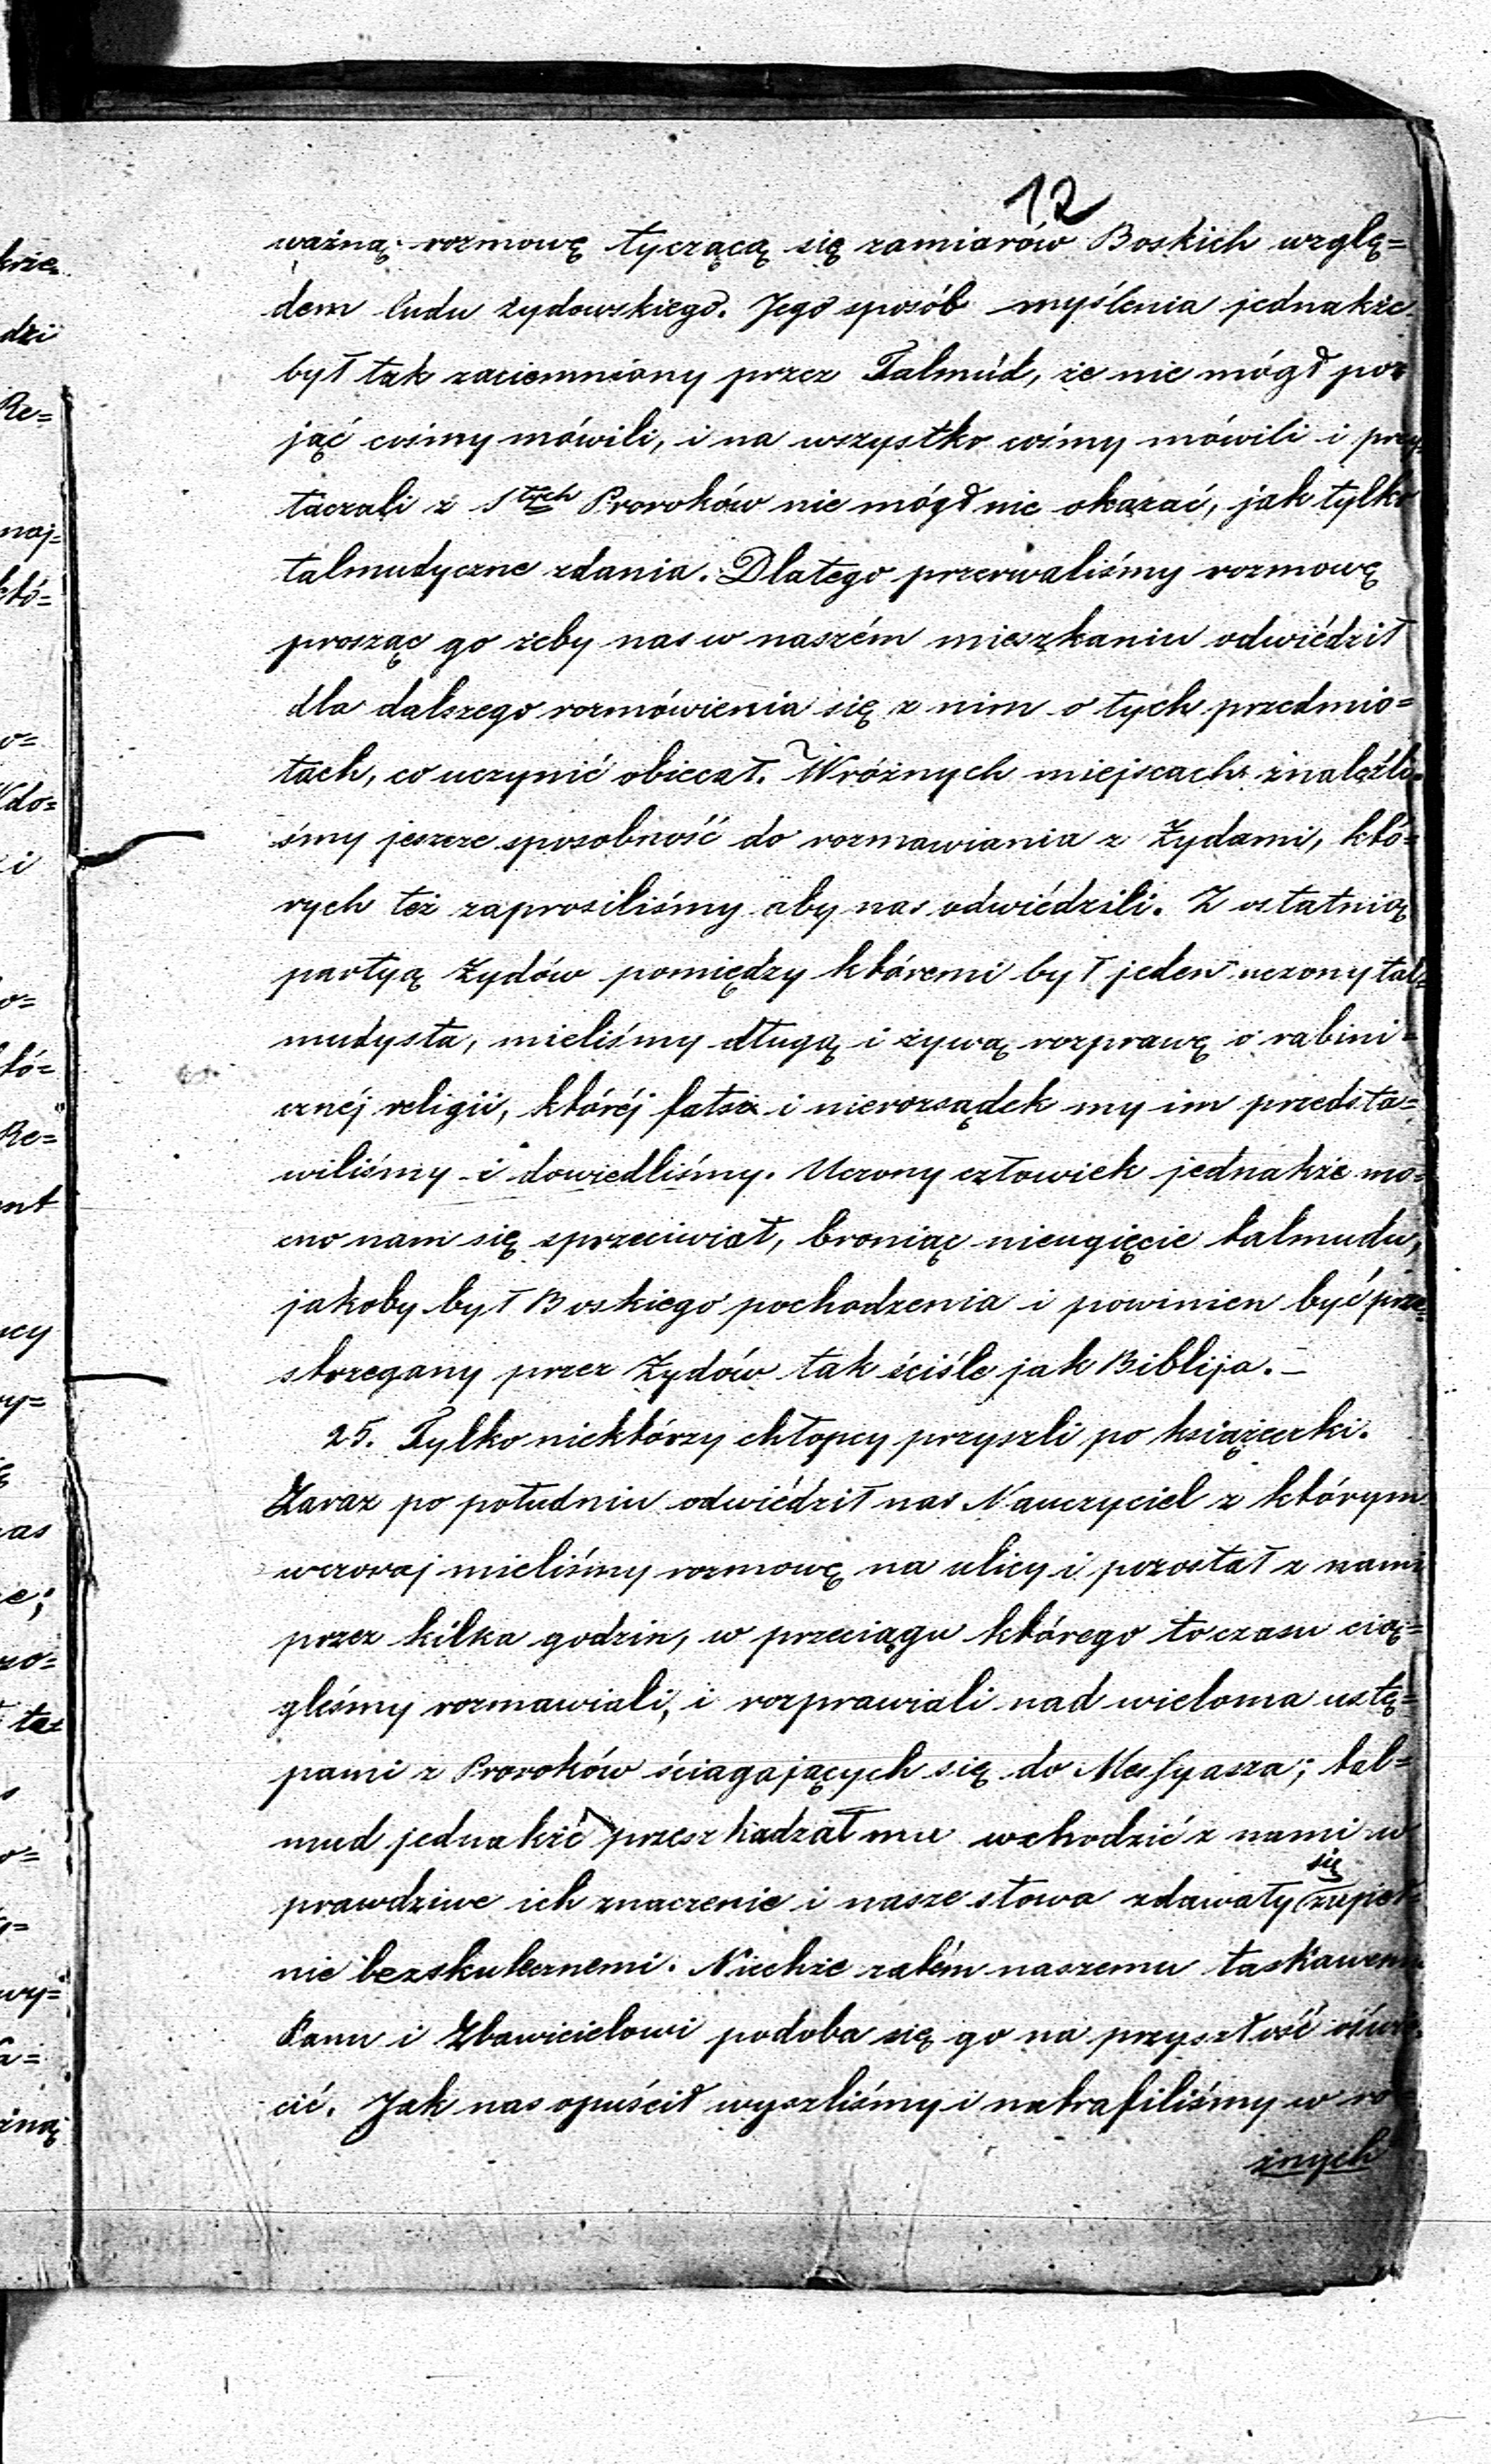 12
ważną rozmowę tyczącą się zamiarów Boskich wzglę=
dem ludu żydowskiego. Jego sposób myślenia jednakże
był tak zaciemniony przez Talmud, że nie mógł po=
jąć cośmy mówili, i na wszystko cośmy mówili i przy=
taczali z Stych Proroków nie mógł nic okazać, jak tylko
talmudyczne zdania. Dlatego przerwaliśmy rozmowę
prosząc go żeby nas w naszém mieszkaniu odwiédził
dla dalszego rozmówienia się z nim o tych przedmio=
tach, co uczynić obiecał. W różnych miejscach znaleźli=
śmy jeszcze sposobność do rozmawiania z Żydami, któ=
rych też zaprosiliśmy aby nas odwiédzili. Z ostatnią
partyą Żydów pomiędzy któremi był jeden uczony tal=
mudysta, mieliśmy długą i żywą rozprawę o rabini=
cznéj religii, któréj fałsz i nierozsądek my im przedsta=
wiliśmy i dowiedliśmy. Uczony człowiek jednakże mo=
cno nam się sprzeciwiał, broniąc nieugięcie talmudu,
jakoby był Boskiego pochodzenia i powinien być prze=
strzegany przez Żydów tak ściśle jak Biblija. –
25. Tylko niektórzy chłopcy przyszli po książeczki.
Zaraz po południu odwiédził nas Nauczyciel z którym
wczoraj mieliśmy rozmowę na ulicy i pozostał z nami
przez kilka godzin, w przeciągu którego to czasu cią=
gleśmy rozmawiali, i rozprawiali nad wieloma ustę=
pami z Proroków ściagających się do Messyasza; tal=
mud jednakże przeszkadzał mu wchodzić z nami w
prawdziwe ich znaczenie i nasze słowa zdawały się zupeł=
nie bezskutecznemi. Niechże zatém naszemu łaskawemu
Panu i Zbawicielowi podoba się go na przyszłość oświe=
cić. Jak nas opuścił wyszliśmy i natrafiliśmy w ró=
żnych